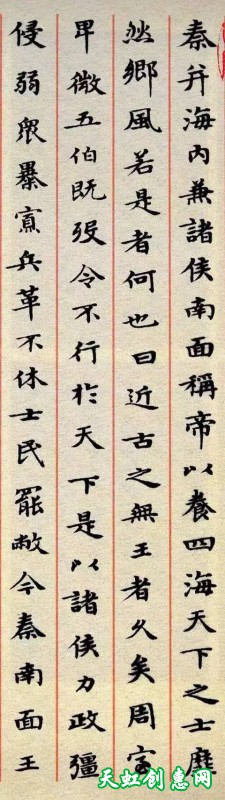 秦并海内兼諸侯南面稱帝以養四海天下之士靡
然鄉風若是者何也曰近古之無王者久矣周室
卑微五伯既歿令不行於天下是以諸侯力政彊
侵弱眾暴寡兵革不休士民罷敝今秦南面王
天虹创意网